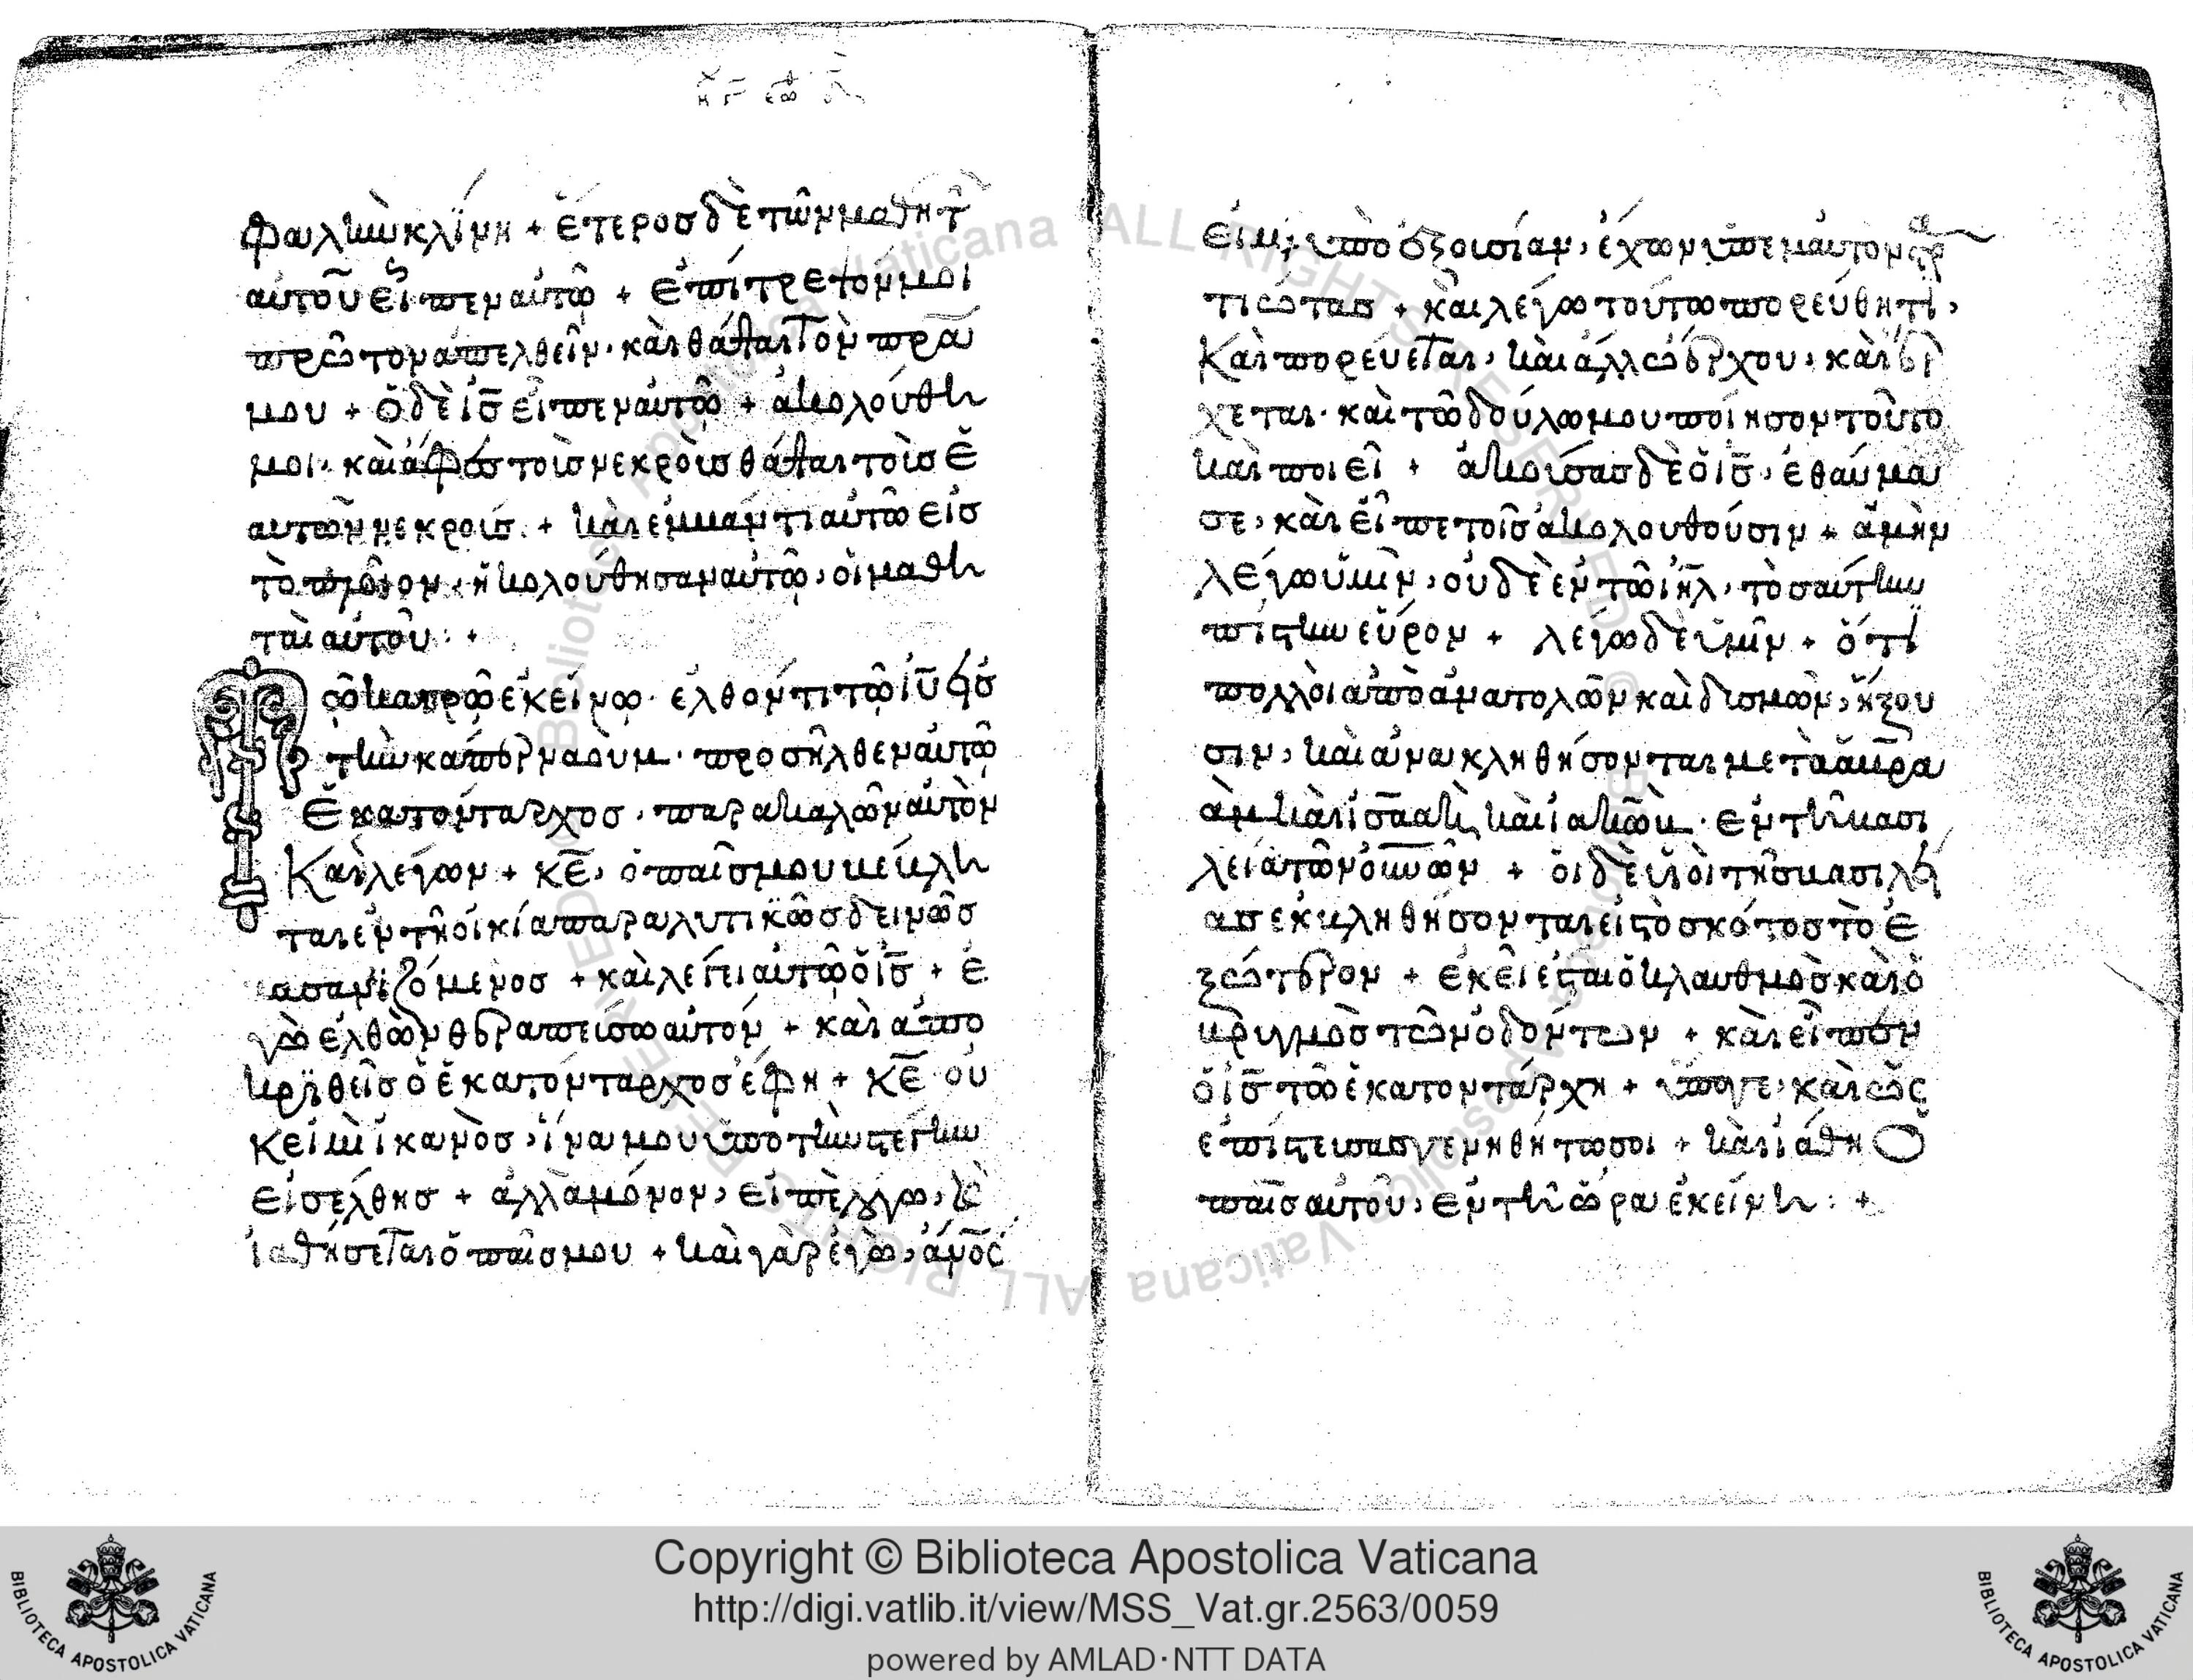 φαλὴν κλίνη + ἕτεροσ δὲ τῶν μαθητ
αὐτοῦ εἶπεν αὐτῶ + ἐπίτρεψόν μοι
πρῶτον ἀπελθεῖν· καὶ θάψαι τὸν πρα
μου + ὁ δὲ ισ εἶπεν αὐτῶ + ἀκολούθη
μοι· καὶ ἄφεσ τοὺσ νεκροὺσ θάψαι τοὺσ ἑ
αυτῶν νεκρούσ + καὶ ἐμβάντι αὐτῶ εἰσ
τὸ πλοῖον, ἠκολούθησαν αὐτῶ, οἱ μαθη
ταὶ αὐτοῦ : +
ῶ καιρῶ ἐκείνω· ἐλθόντι τῶ ιυ εἰσ
τὴν καπερναούμ· προσῆλθεν αὐτῶ
ἑκατόνταρχοσ, παρακαλῶν αὐτὸν
Καὶ λέγων + κε, ὁ παῖσ μου βέβλη
ται ἐν τῆ οἰκία παραλυτικῶσ δεινῶσ
βασανιζόμενοσ + καὶ λέγει αὐτῶ ὁ ισ + ἐ
γὼ ἐλθὼν θεραπεύσω αὐτόν + καὶ ἀπο
κριθεῖσ ὁ ἑκατόνταρχοσ ἔφη + κε οὐ
κ εἰμὶ ἱκανὸσ, ἵνα μου ὑπὸ τὴν στέγην
εἰσέλθησ + ἀλλὰ μόνον, εἰπὲ λόγω, καὶ
ἰαθήσεται ὁ παῖσ μου + καὶ γὰρ ἐγὼ, ἀνοσ
εἰμι ὑπὸ ἐξουσίαν, ἔχων ὑπ' ἐμαυτὸν στρα
τιώτασ + καὶ λέγω τούτω πορεύθητι,
Καὶ πορεύεται, καὶ ἄλλω ἔρχου, καὶ ἔρ
χεται· καὶ τῶ δούλω μου ποίησον τοῦτο
καὶ ποιεῖ + ἀκούσασ δὲ ὁ ισ, ἐθαύμα
σε, καὶ εἶπε τοῖσ ἀκολουθοῦσιν + ἀμὴν
λέγω ὑμῖν, οὐδὲ ἐν τῶ ιηλ, τοσαύτην
πίστιν εὗρον + λέγω δὲ ὑμῖν + ὅτι
πολλοὶ ἀπὸ ἀνατολῶν καὶ δυσμῶν, ἥξου
σιν, καὶ ἀνακληθήσονται μετὰ ἀβρα
ὰμ καὶ ισαὰκ, καὶ ἰακὼβ· ἐν τῆ βασι
λεία τῶν ουνῶν + οἱ δὲ υἱοὶ τῆσ βασιλεί
ασ ἐκβληθήσονται εἰς τὸ σκότοσ τὸ ἐ
ξώτερον + ἐκεῖ ἔσται ὁ κλαυθμὸσ καὶ ὁ
βρυγμὸσ τῶν ὀδόντων + καὶ εἶπεν
ὁ ισ τῶ ἑκατοντάρχη + ὕπαγε, καὶ ὡς
ἐπίστευσασ γενηθήτω σοι + καὶ ἰάθη ὁ
παῖσ αὐτοῦ, ἐν τῆ ὥρα ἐκείνη : +
Copyright © Biblioteca Apostolica Vaticana
http://digi.vatlib.it/view/MSS_Vat.gr.2563/0059
powered by AMLAD·NTT DATA
BIBLIOTECA APOSTOLICA VATICANA
BIBLIOTECA APOSTOLICA VATICANA